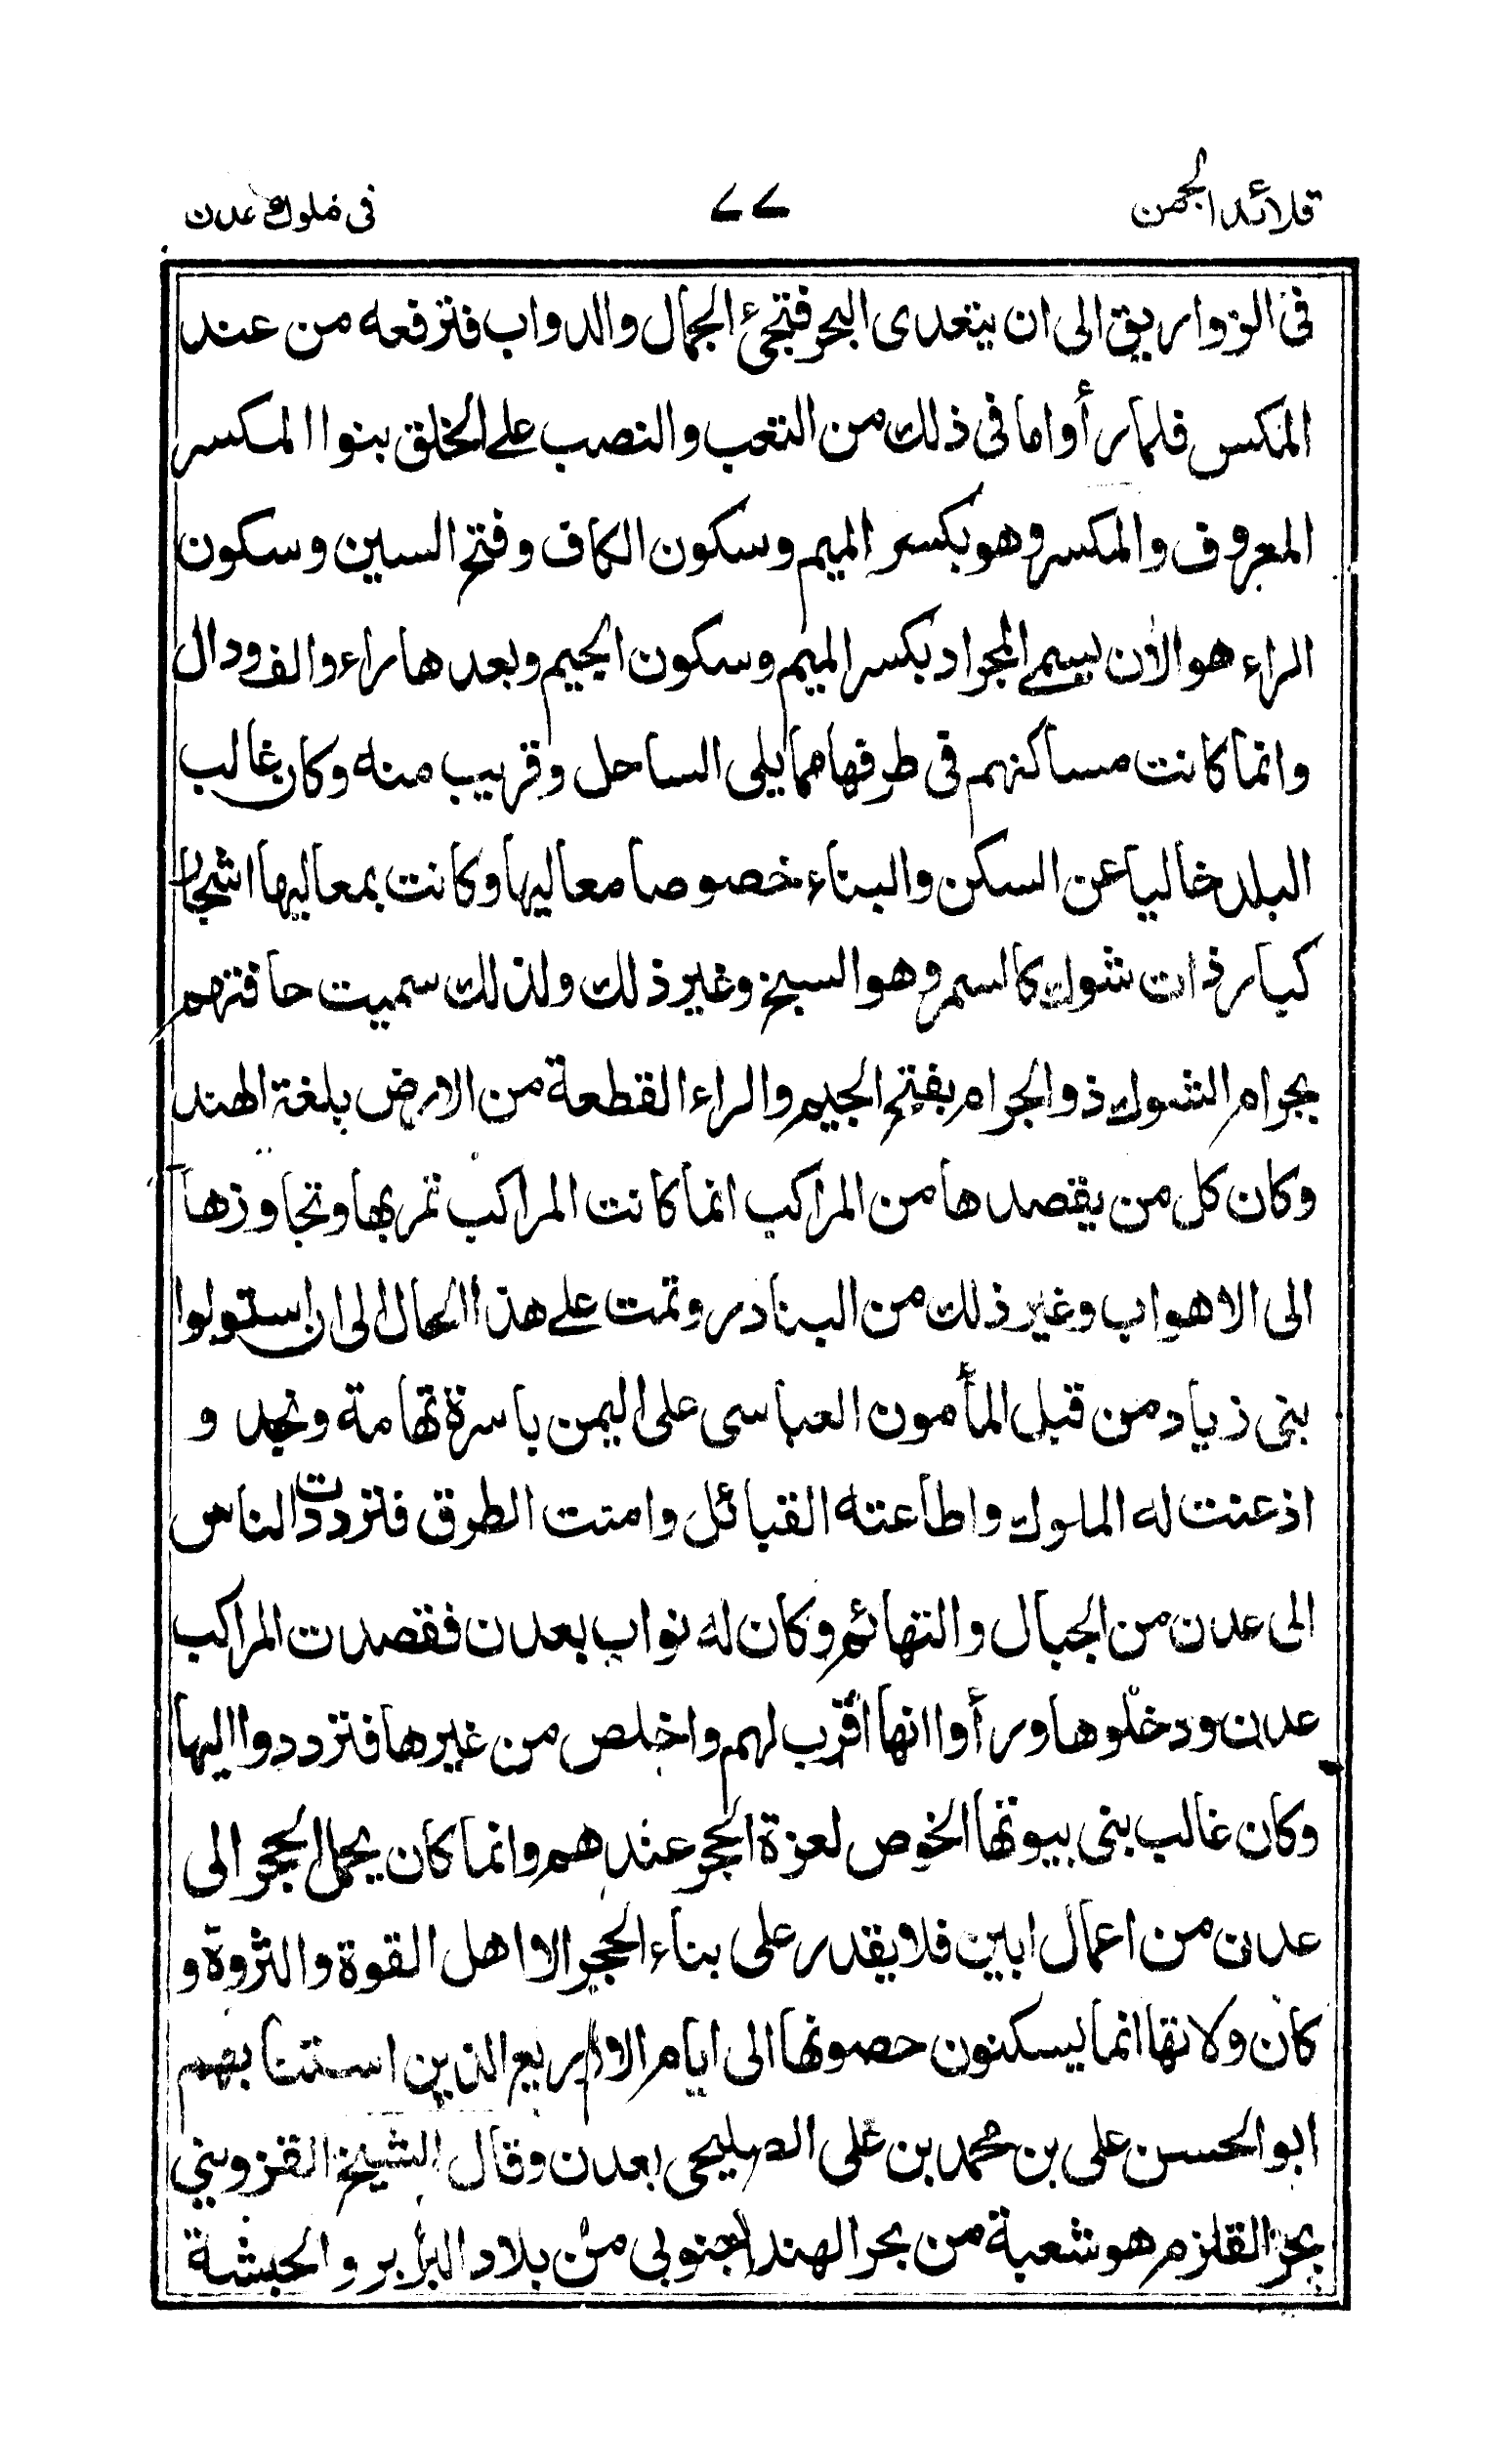 قلائد الجمن
٧٧
فى ملوك عدن
فى الزواريق الى ان يتعدى البحر فتجئ الجمال والدواب فترفعه من عند
المكس فلما رأوا ما فى ذلك من التعب والنصب على الخلق بنوا المكسر
المعروف والمكسر وهو بكسر الميم وسكون الكاف وفتح السين وسكون
الراء هو الان يسمى المجراد بكسر الميم وسكون الجيم وبعدها راء والف ودال
وانما كانت مساكنهم فى طرفها مما يلى الساحل وقريب منه وكان غالب
البلد خاليا عن السكن والبناء خصوصا معاليها وكانت بمعاليها اشجار
كبار ذات شوك كالسمر وهو السبخ وغير ذلك ولذلك سميت حافتهم
بجرام الشوك ذو الجرام بفتح الجيم والراء القطعة من الارض بلغة الهند
وكان كل من يقصدها من المراكب انما كانت المراكب تمر بها وتجاوزها
الى الاهواب وغير ذلك من البنادر وتمت على هذا الحال الى ان استولوا
بنى زياد من قبل المأمون العباسى على اليمن باسرة تهامة ونجد و
اذعنت له الملوك واطاعته القبائل وامنت الطرق فترددت الناس
الى عدن من الجبال والتهائم وكان له نواب بعدن فقصدت المراكب
عدن ودخلوها ورأوا انها اقرب لهم واخلص من غيرها فترددوا اليها
وكان غالب بنى بيوتها الخوص لعزة الحجر عندهم وانما كان يحمل الحجر الى
عدن من اعمال ابين فلا يقدر على بناء الحجر الا اهل القوة والثروة و
كان ولاتها انما يسكنون حصونها الى ايام الذين استنابهم
ابو الحسن على بن محمد بن على الصليحى بعدن وقال الشيخ القزوينى
بحر القلزم هو شعبة من بحر الهند جنوبى من بلاد البرابر والحبشة